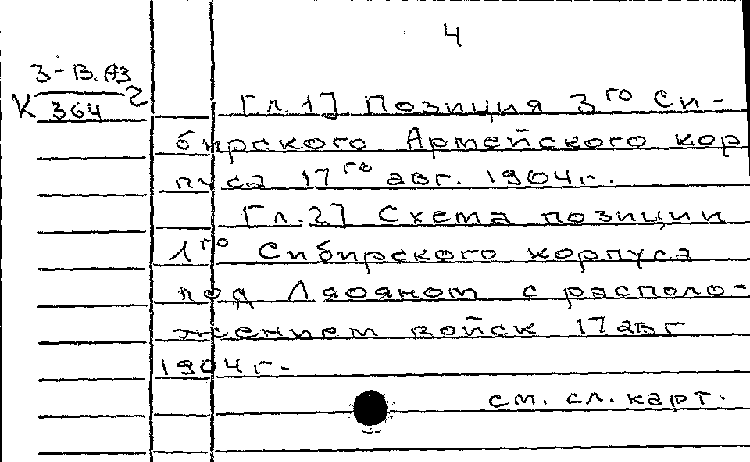 4
З-В.Аз
К 364 2
[л.1] Позиция 3го Си-
бирского Армейского кор
пуса 17го авг. 1904г.
[л.2] Схема позиции
1го Сибирского корпуса
под Ляояном с располо-
жением войск 17 авг
1904г.
см. сл. карт.